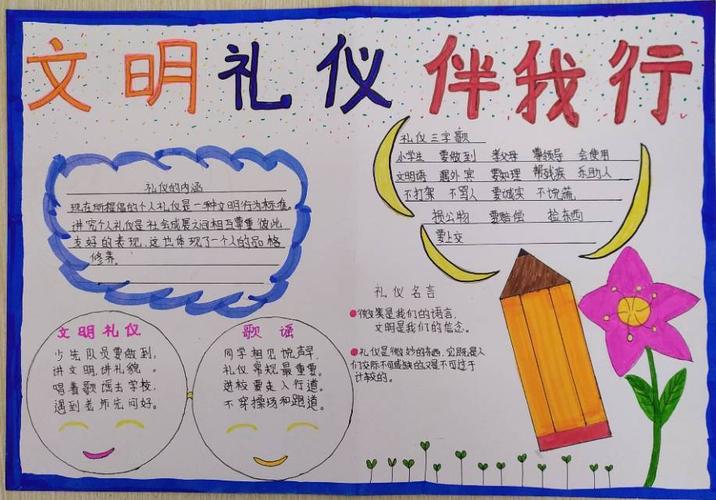 文明礼仪 伴我行
礼仪的内涵
现在所提倡的个人礼仪是一种文明行为标准。
讲究个人礼仪是社会成员之间相互尊重彼此
友好的表现,这也体现了一个人的品格
修养。
礼仪三字歌
小学生 要做到 孝父母 尊领导 会使用
文明语 要知理 帮残疾 乐助人
不打架 不骂人 要诚实 不说谎
损公物 要赔偿 捡东西
要上交
礼仪名言
微笑是我们的语言,
文明是我们的信念。
礼仪是微妙的东西,它既是人
们交际不可或缺的又是不可过于
计较的。
文明礼仪
少生队员要做到,
讲文明,讲礼貌。
唱着歌儒去学校,
遇到老师先问好。
歌谣
同学相见说声早,
礼仪常规最重要。
进校要走人行道,
不穿操场和跑道。